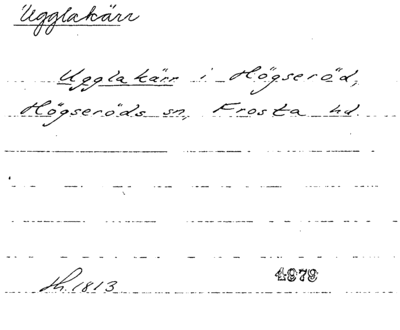 Ugglakärr
Ugglakärr i Högseröd,
Högseröds sn, Frosta hd.
Sh. 1813
4979